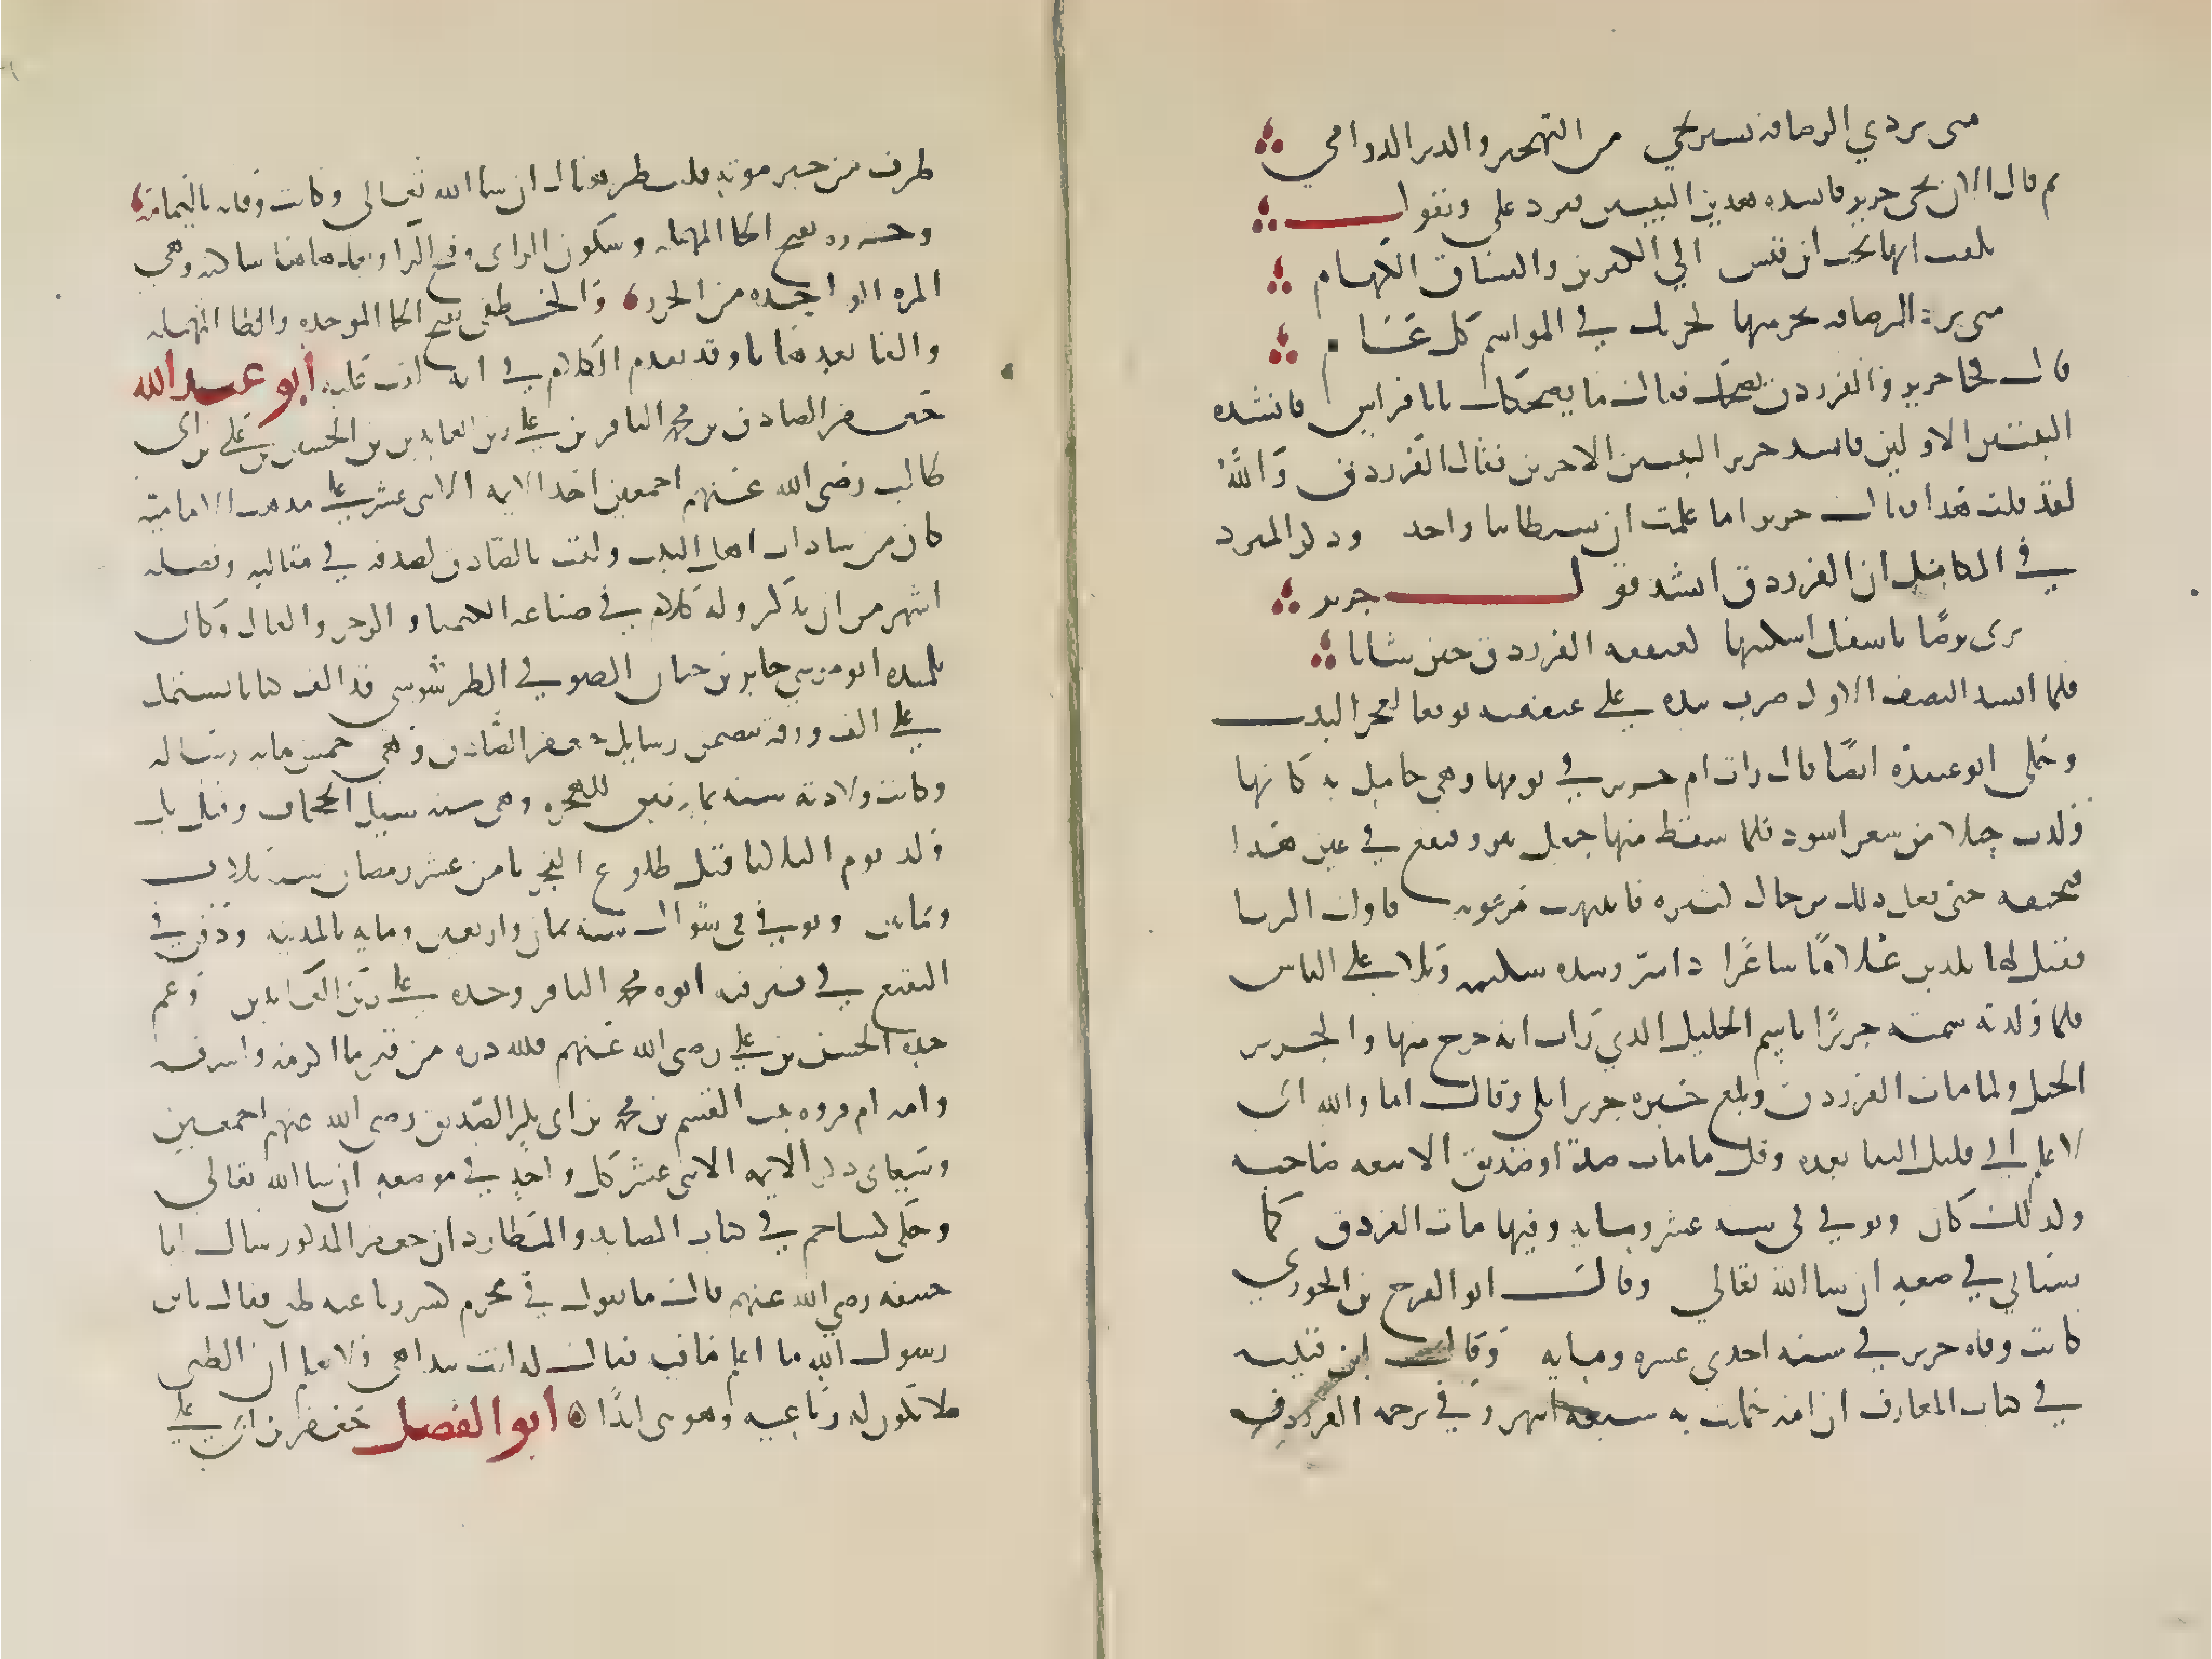 متى تردي الرصافة تستريحي من التهجير والدبر الدوامي
ثم قال الان يجي جرير فانشده هذين البيتين فيرد علي ويقول
تلفت انها تحت ابن قين الي الكيرين والفاس الكهام
متى ترد الرصافة تخز فيها كخزيك في المواسم كل عام
قال فجا جرير والفرزدق يضحك فقال ما يضحكك يا با فراس فانشده
البيتين الاولين فانشد جرير البيتين الاخرين فقال الفرزدق والله
لقد قلت هذا فقال جرير اما علمت ان شيطاننا واحد وذكر المبرد
في الكامل ان الفرزدق انشد قول جرير
ترى برصا باسفل اسكتيها كعنفقة الفرزدق حين شابا
فلما انشد النصف الاول ضرب بيده علي عنفقته توقعا لعجز البيت
وحكى ابو عبيدة ايضا قال رات ام جرير في نومها وهي حامل به كانها
ولدت حبلا من شعر اسود فلما سقط منها جعل ينزو فيقع في عنق هذا
فيخنقه حتى فعل ذلك برجال كثيرة فانتبهت مرعوبة فاولت الرويا
فقيل لها تلدين غلاما شاعرا ذا شر وشدة شكيمة وبلا علي الناس
فلما ولدته سمته جريرا باسم الحبل الذي رات انه خرج منها والجرير
الحبل ولما مات الفرزدق وبلغ خبره جريرا بكى وقال اما والله اني
لاعلم اني قليل البقا بعده وقل ما مات ضد او صديق الا تبعه صاحبه
وكذلك كان وتوفي في سنة عشر ومايه وفيها مات الفرزدق كما
سياتي في موضعه ان شا الله تعالي وقال ابو الفرج بن الجوزي
كانت وفاه جرير في سنه احدي عشره ومايه وقال ابن قتيبه
في كتاب المعارف ان امه حملت به سبعه اشهر وفي ترجمه الفرزدق
طرف من خبر موته فلينظر هناك ان شا الله تعالى وكانت وفاته باليمامة
وحزرة بفتح الحا المهملة وسكون الزاى وفتح الرا وبعدها ها ساكنه وهي
المره الواحده من الحزر والخطفى بفتح الخا الموحده والطا المهملة
والفا بعدها يا وقد تقدم الكلام في انه لقب عليه ابو عبد الله
جعفر الصادق بن محمد الباقر بن علي زين العابدين بن الحسين بن علي بن ابي
طالب رضى الله عنهم اجمعين احد الايمه الاثنى عشر علي مذهب الامامية
كان من سادات اهل البيت ولقب بالصادق لصدقه في مقالته وفضله
اشهر من ان يذكر وله كلام في صناعه الكيميا والزجر والفال وكان
تلميذه ابو موسي جابر بن حيان الصوفي الطرسوسي قد الف كتابا يشتمل
علي الف ورقه تتضمن رسايل جعفر الصادق وهي خمس مايه رساله
وكانت ولادته سنه ثمانين للهجره وهى سنه سيل الجحاف وقيل بل
ولد يوم الثلاثا قبل طلوع الفجر ثامن عشر رمضان سنة ثلاث
وثمانين وتوفي في شوال سنه ثمان واربعين ومايه بالمدينه ودفن في
البقيع في قبر فيه ابوه محمد الباقر وجده علي زين العابدين وعم
جده الحسن بن علي رضى الله عنهم فلله دره من قبر ما اكرمه واشرفه
وامه ام فروه بنت القسم بن محمد بن ابى بكر الصديق رضى الله عنهم اجمعين
وسياتى ذكر الايمه الاثنى عشر كل واحد في موضعه ان شا الله تعالي
وحكى كشاجم في كتاب المصايد والمطارد ان جعفر المذكور سال ابا
حنيفه رضي الله عنهم فقال ما تقول في محرم كسر رباعيه ظبي فقال يا بن
رسول الله ما اعلم ما فيه فقال له انت تتداهى ولا تعلم ان الظبى
لا تكون له رباعيه وهو ثنى ابدا ابو الفضل جعفر بن ابي علي